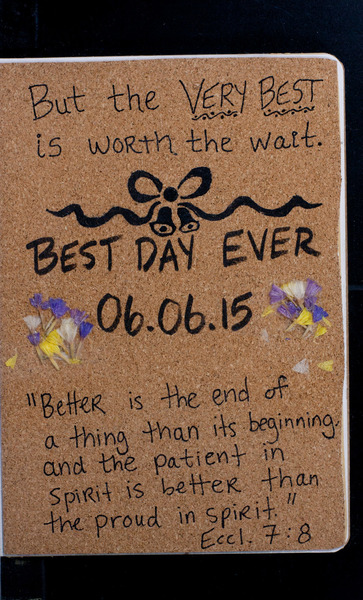 But the VERY BEST
is worth the wait.
BEST DAY EVER
06.06.15
"Better is the end of
a thing than its beginning,
and the patient in
spirit is better than
the proud in spirit."
Eccl. 7:8